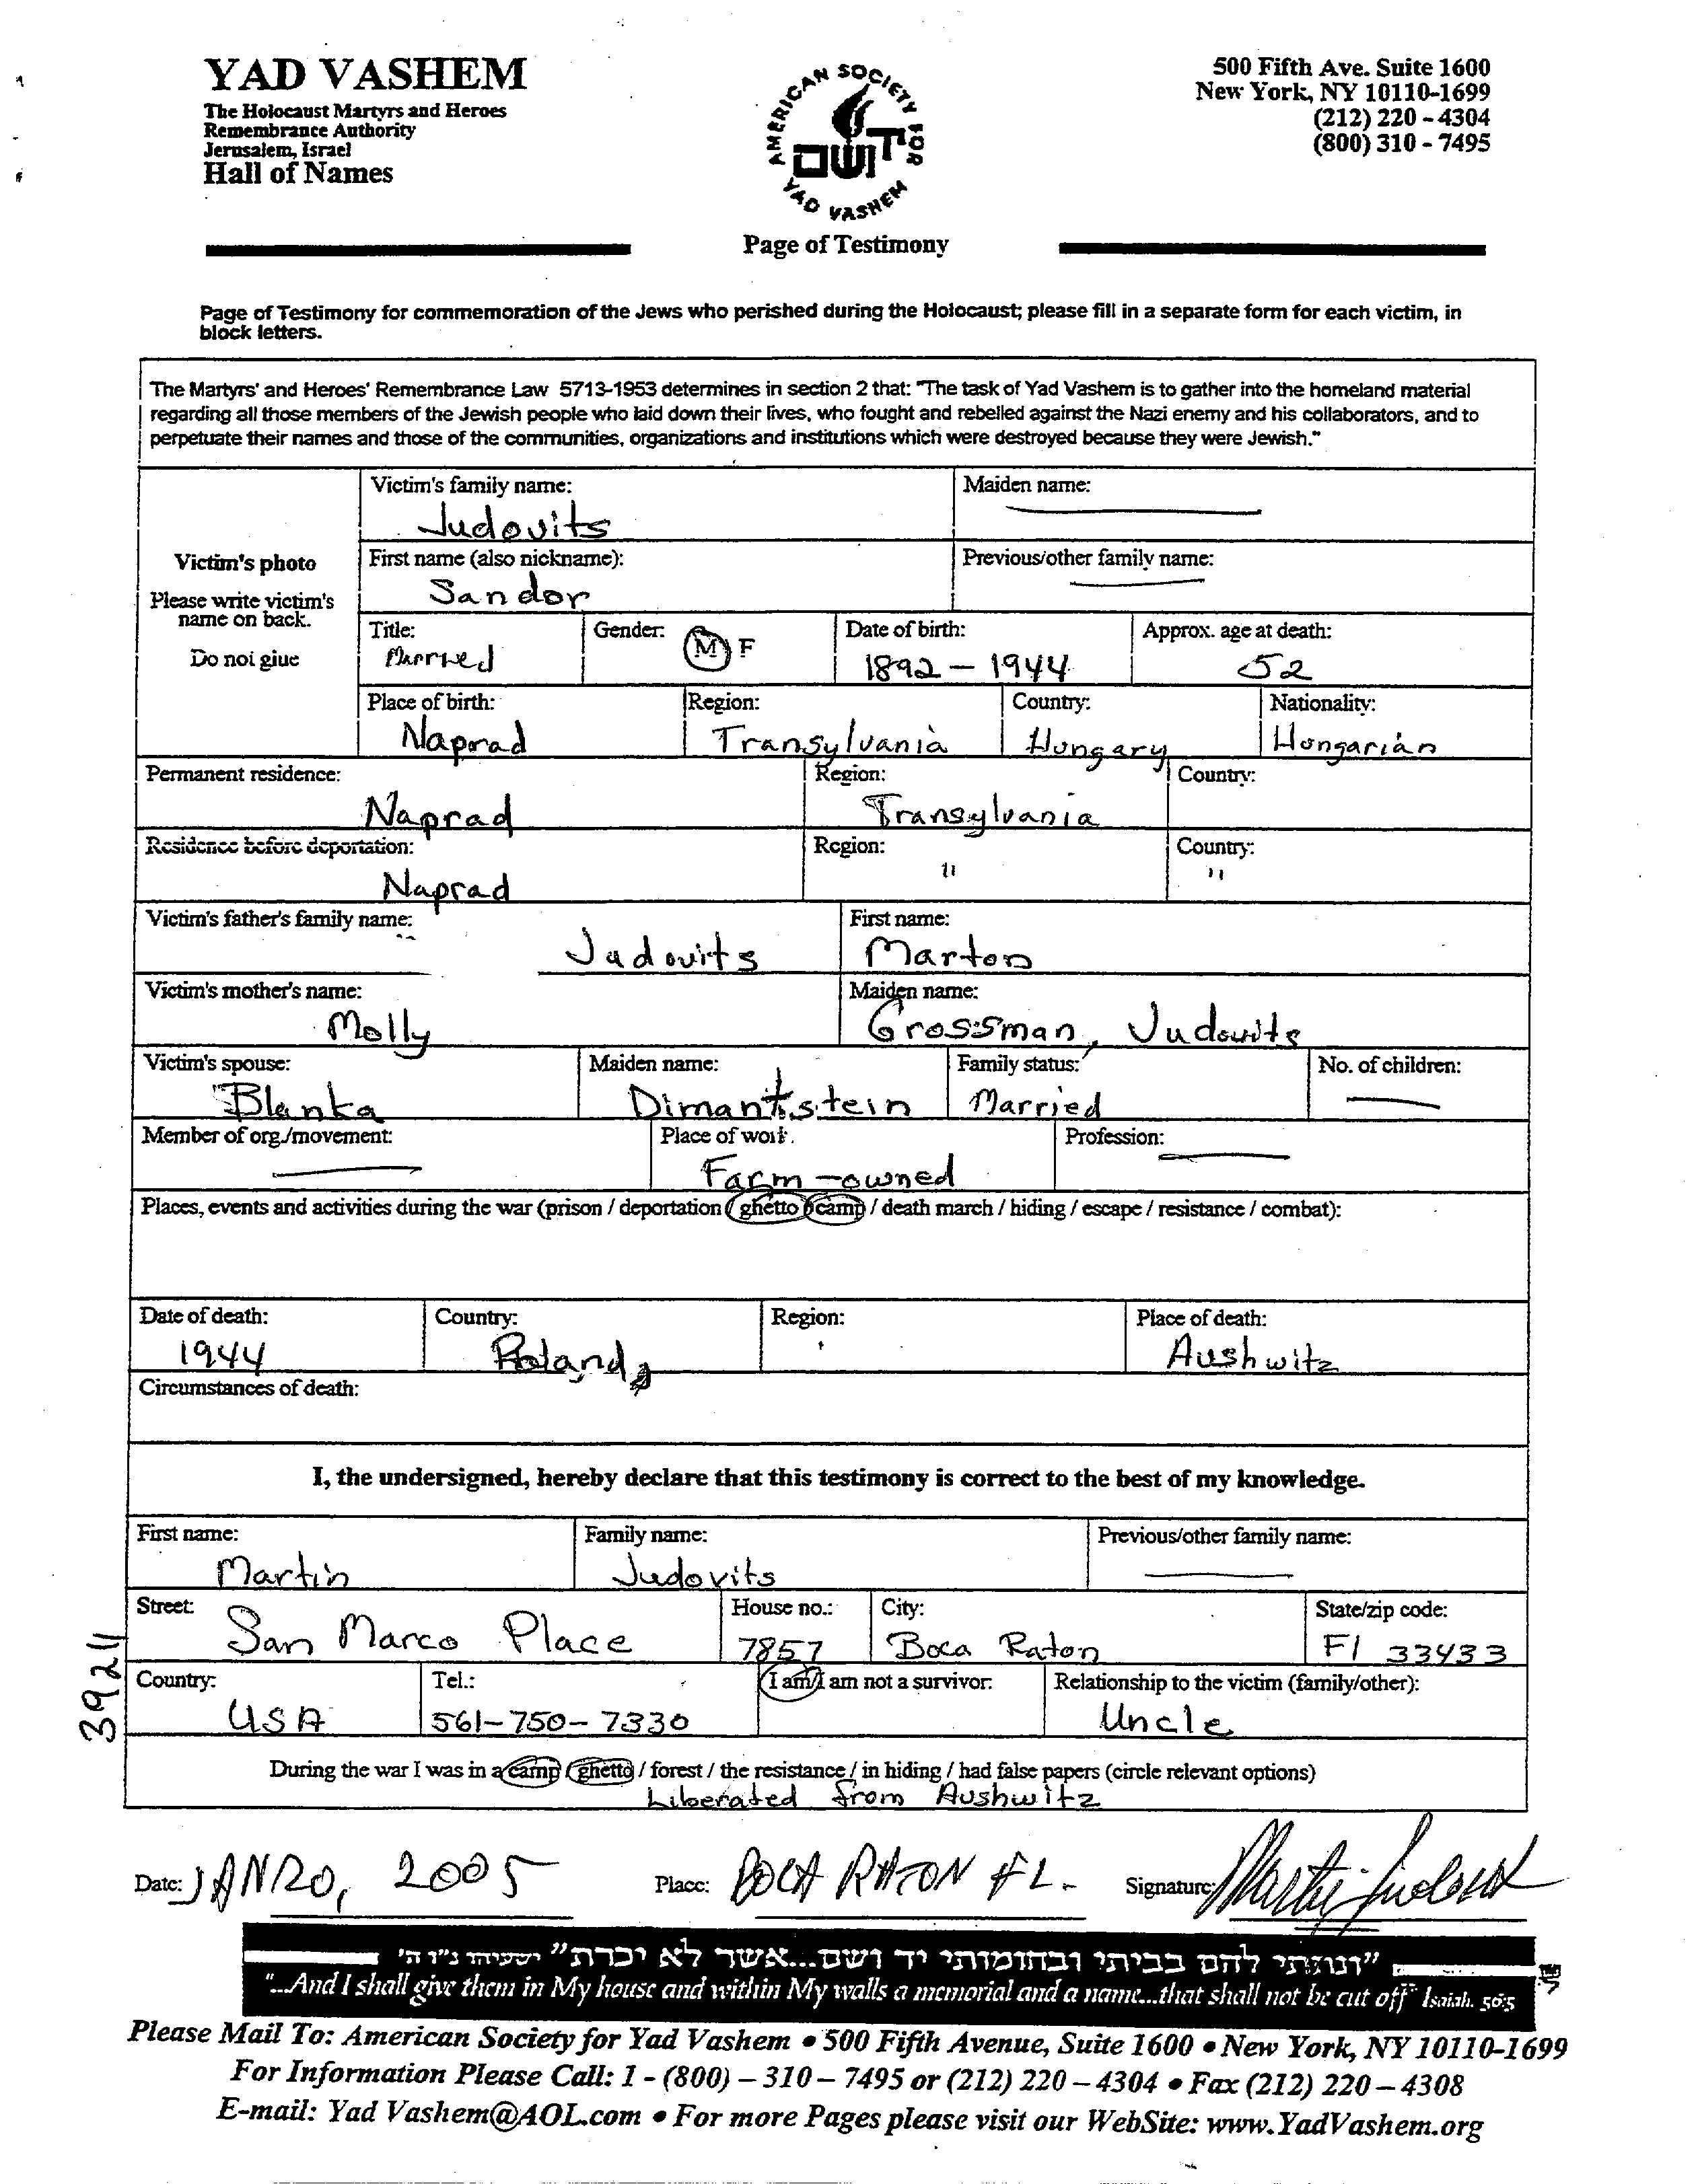 YAD VASHEM
The Holocaust Martyrs and Heroes
Remembrance Authority
Jerusalem, Israel
Hall of Names
AMERICAN SOCIETY FOR
יד ושם
YAD VASHEM
Page of Testimony
500 Fifth Ave. Suite 1600
New York, NY 10110-1699
(212) 220 - 4304
(800) 310 - 7495
Page of Testimony for commemoration of the Jews who perished during the Holocaust; please fill in a separate form for each victim, in
block letters.
The Martyrs' and Heroes' Remembrance Law 5713-1953 determines in section 2 that: "The task of Yad Vashem is to gather into the homeland material
regarding all those members of the Jewish people who laid down their lives, who fought and rebelled against the Nazi enemy and his collaborators, and to
perpetuate their names and those of the communities, organizations and institutions which were destroyed because they were Jewish."
Victim's photo
Please write victim's
name on back.
Do not glue
Victim's family name: Maiden name:
Judovits
First name (also nickname): Previous/other family name:
Sandor
Title: Gender: M F Date of birth: Approx. age at death:
Married 1892 - 1944 52
Place of birth: Region: Country: Nationality:
Naprad Transylvania Hungary Hungarian
Permanent residence: Region: Country:
Naprad Transylvania
Residence before deportation: Region: Country:
Naprad " "
Victim's father's family name: First name:
Judovits Marton
Victim's mother's name: Maiden name:
Molly Grossman, Judovits
Victim's spouse: Maiden name: Family status: No. of children:
Blanka Dimantstein Married
Member of org./movement: Place of work: Profession:
Farm - owned
Places, events and activities during the war (prison / deportation / ghetto / camp / death march / hiding / escape / resistance / combat):
Date of death: Country: Region: Place of death:
1944 Poland Aushwitz
Circumstances of death:
I, the undersigned, hereby declare that this testimony is correct to the best of my knowledge.
First name: Family name: Previous/other family name:
Martin Judovits
Street: House no.: City: State/zip code:
San Marco Place 7857 Boca Raton Fl 33433
Country: Tel.: I am/I am not a survivor: Relationship to the victim (family/other):
USA 561-750-7330 Uncle
During the war I was in a camp / ghetto / forest / the resistance / in hiding / had false papers (circle relevant options)
Liberated from Aushwitz
39211
Date: JAN 20, 2005 Place: BOCA RATON FL. Signature: Martin Judovits
"ונתתי להם בביתי ובחומותי יד ושם...אשר לא יכרת" ישעיהו נ"ו ה'
"...And I shall give them in My house and within My walls a memorial and a name...that shall not be cut off" Isaiah. 56:5
Please Mail To: American Society for Yad Vashem • 500 Fifth Avenue, Suite 1600 • New York, NY 10110-1699
For Information Please Call: 1 - (800) – 310 – 7495 or (212) 220 – 4304 • Fax (212) 220 – 4308
E-mail: Yad Vashem@AOL.com • For more Pages please visit our WebSite: www.YadVashem.org